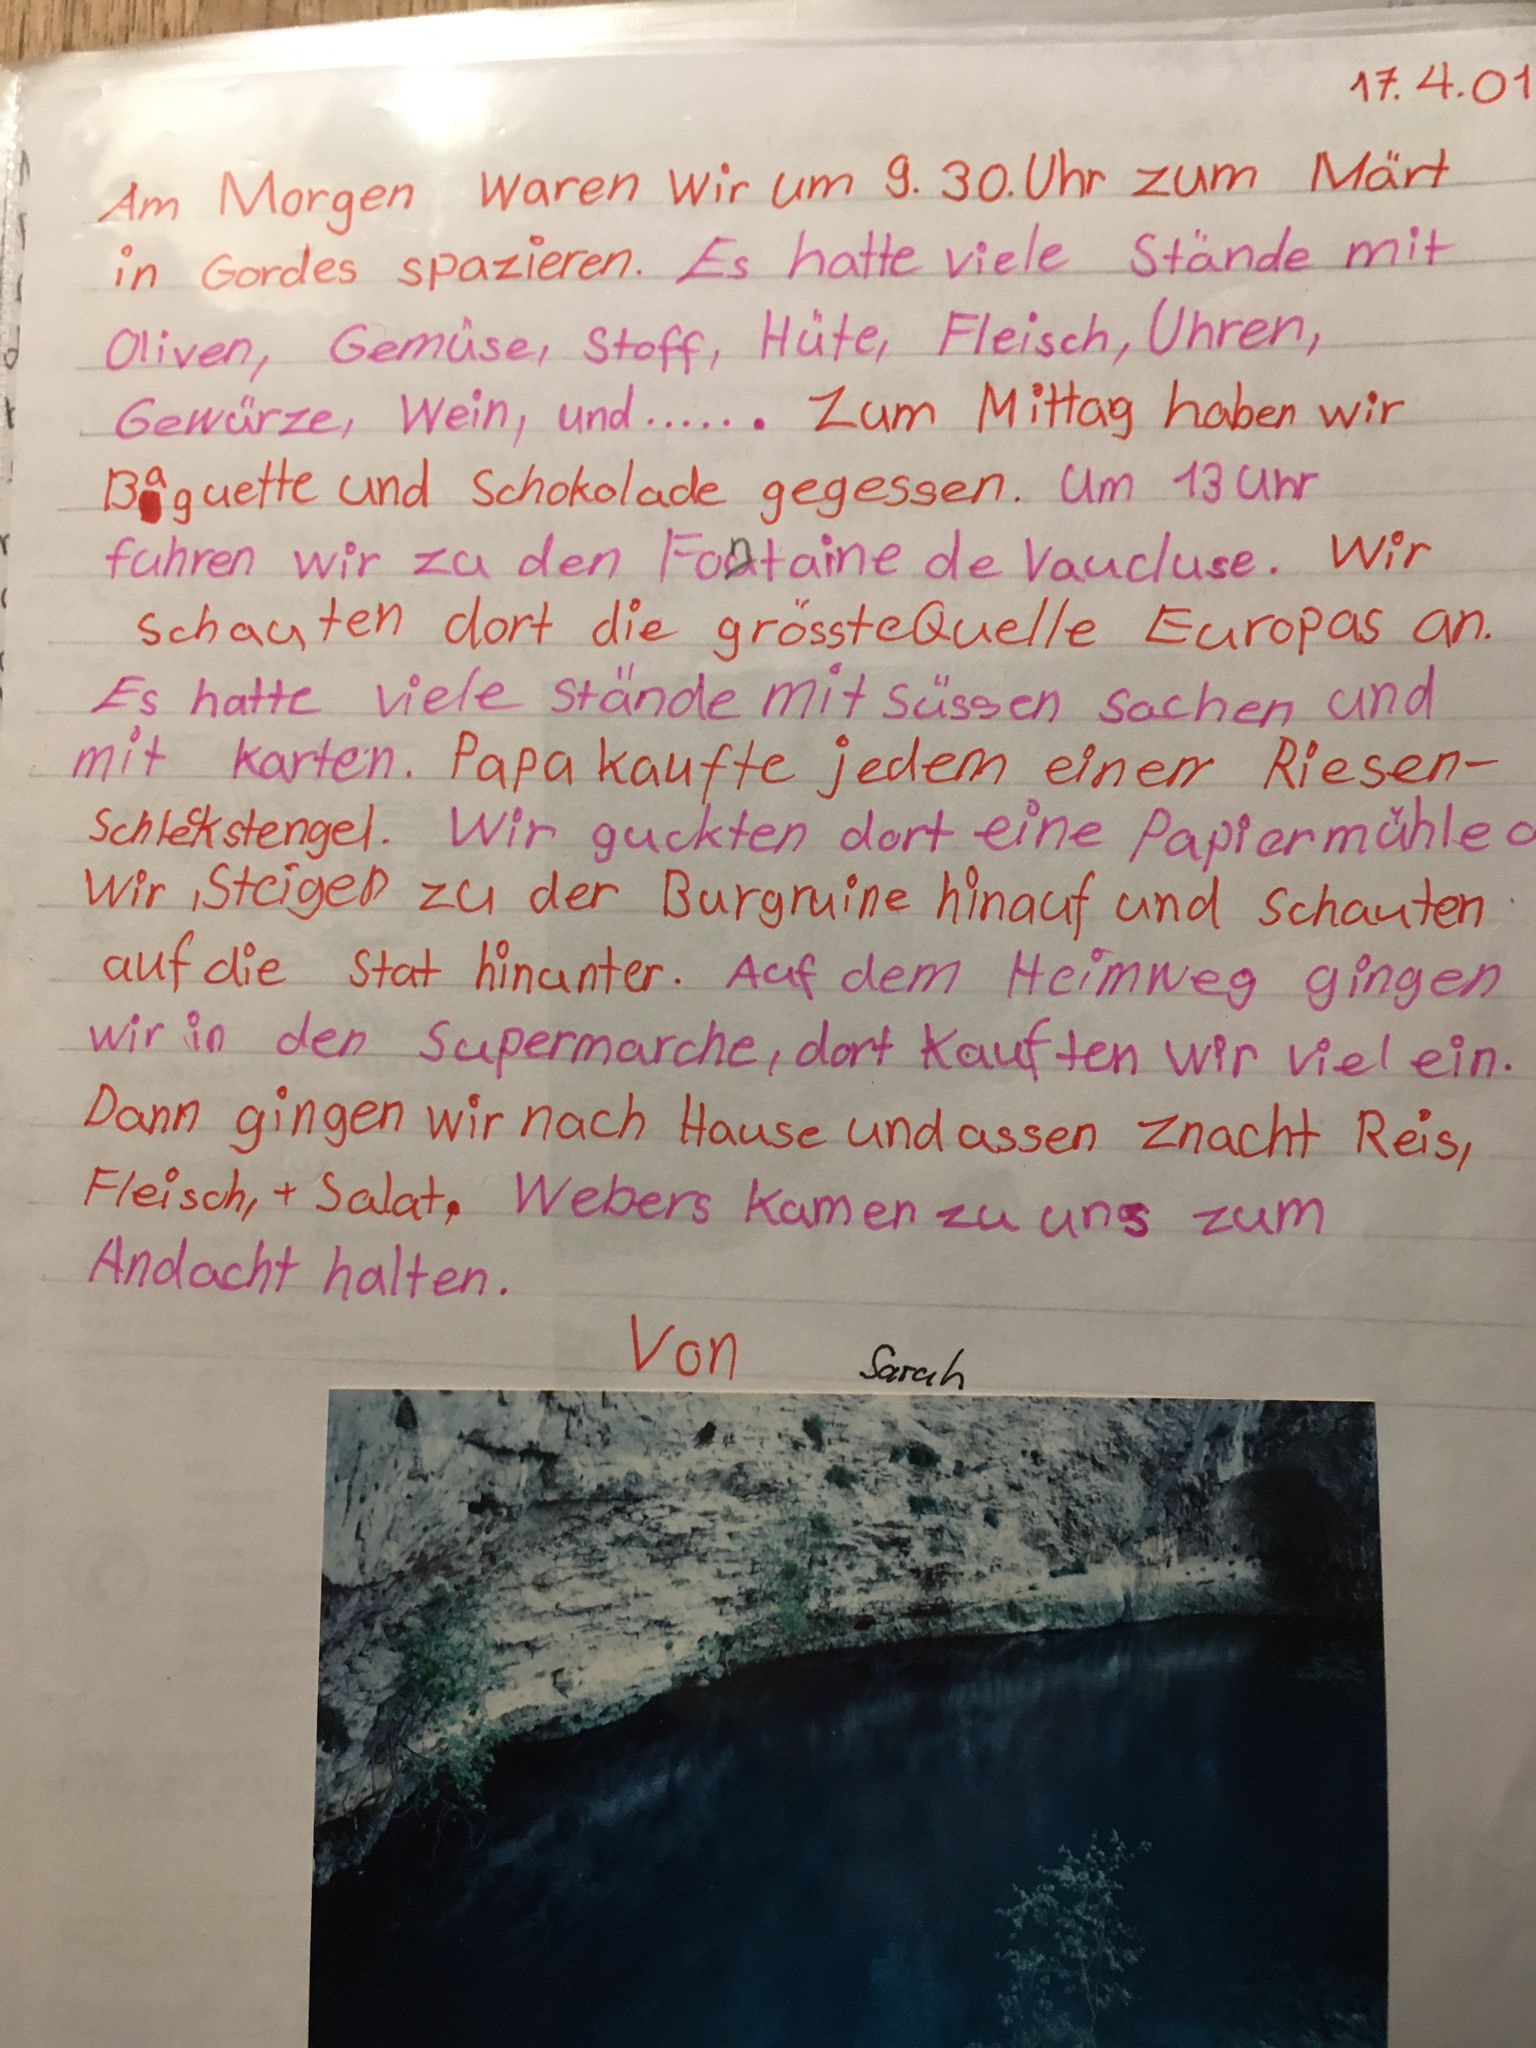 17.4.01
Am Morgen waren wir um 9.30. Uhr zum Märt
in Gordes spazieren. Es hatte viele Stände mit
Oliven, Gemüse, Stoff, Hüte, Fleisch, Uhren,
Gewürze, Wein, und....... Zum Mittag haben wir
Baguette und Schokolade gegessen. Um 13 Uhr
fuhren wir zu den Fontaine de Vaucluse. Wir
schauten dort die grösste Quelle Europas an.
Es hatte viele Stände mit süssen sachen und
mit karten. Papa kaufte jedem einen Riesen-
Schlekstengel. Wir guckten dort eine Papiermühle
Wir Steigen zu der Burgruine hinauf und schauten
auf die Stat hinunter. Auf dem Heimweg gingen
wir in den Supermarche, dort kauften wir viel ein.
Dann gingen wir nach Hause und assen znacht Reis,
Fleisch, + Salat. Webers kamen zu uns zum
Andacht halten.
Von Sarah